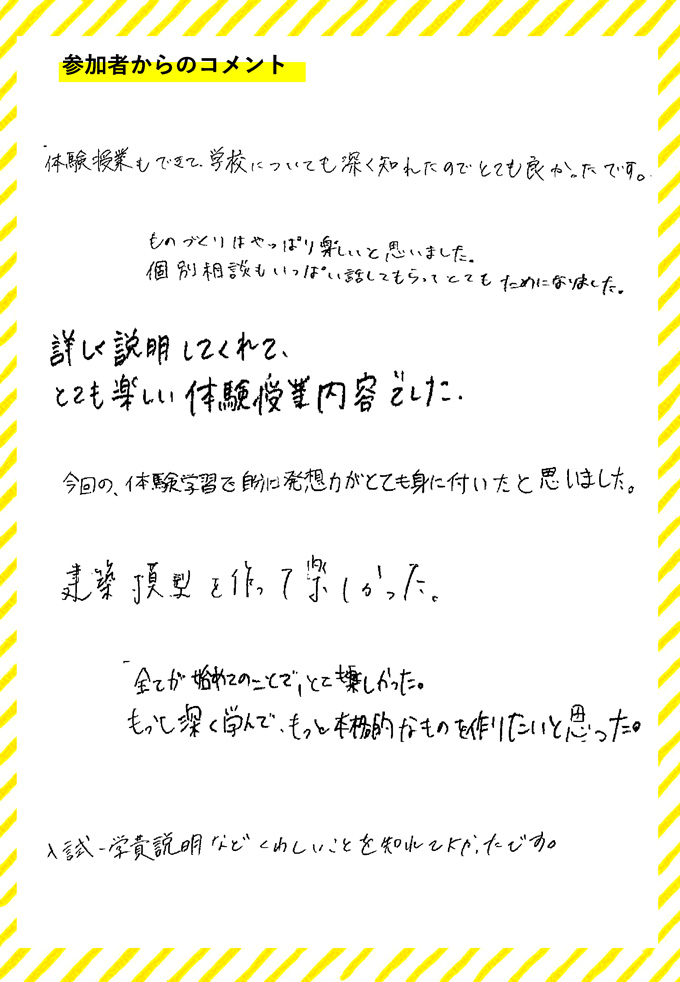 参加者からのコメント
体験授業もできて、学校についても深く知れたのでとても良かったです。
ものづくりはやっぱり楽しいと思いました。
個別相談もいっぱい話してもらってとてもためになりました。
詳しく説明してくれて、
とても楽しい体験授業内容でした.
今回の、体験学習で自分は発想力がとても身に付いたと思いました。
建築模型を作って楽しかった。
全てが始めてのことで、とても楽しかった。
もっと深く学んで、もっと本格的なものを作りたいと思った。
入試-学費説明などくわしいことを知れてよかったです。